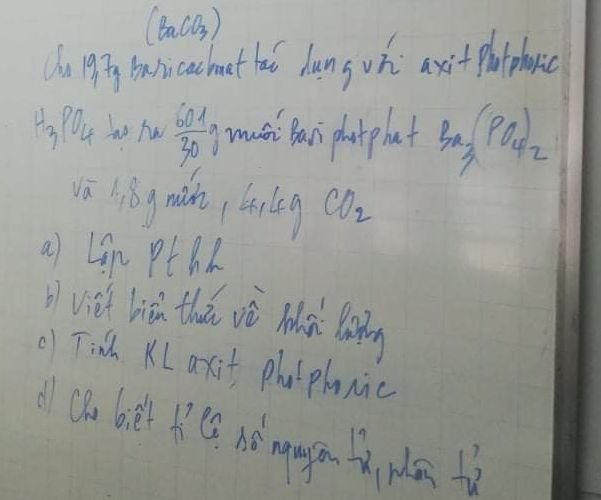 (BaCO3)
Cho 19,7g Baricacbonat tác dụng với axit Photphoric
H3PO4 tạo ra 601/30 g muối Bari photphat Ba3(PO4)2
và 1,8g nước, 4,4g CO2
a) Lập Pthh
b) Viết biểu thức về khối lượng
c) Tính KL axit photphoric
d) Cho biết tỉ lệ số nguyên tử, phân tử